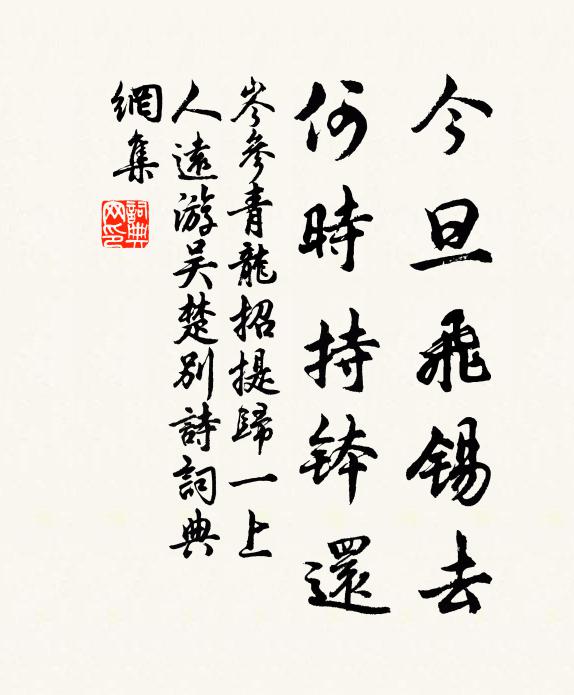 今旦飛錫去
何時持鉢還
岑參青龍招提歸一上
人遠游吳楚別詩詞典
網集
詞典網印